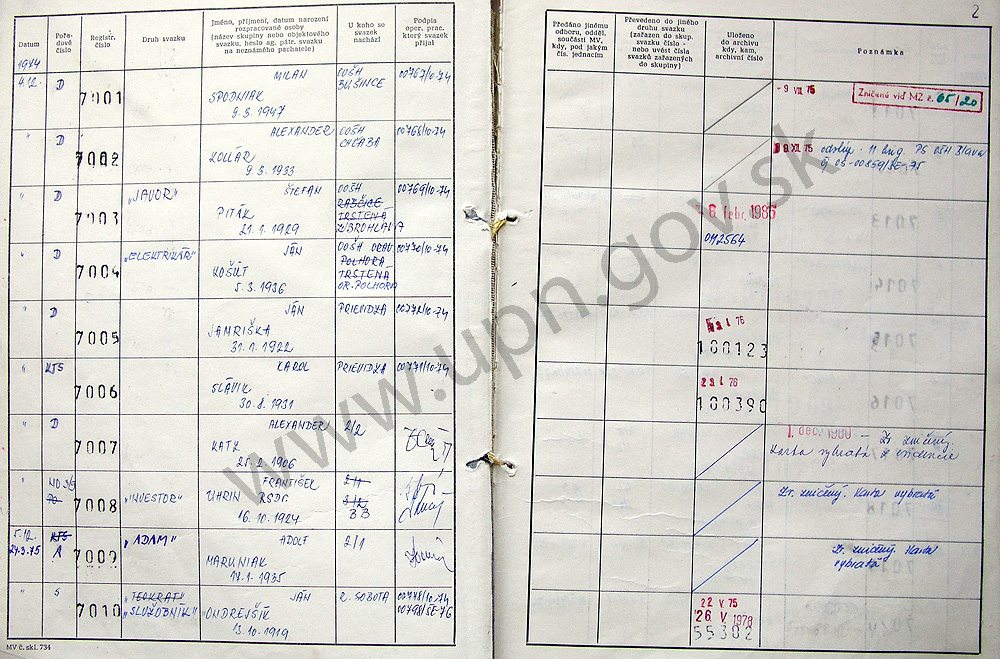 2
Datum
Pořadové číslo
Registr. číslo
Druh svazku
Jméno, příjmení, datum narození rozpracované osoby (název skupiny nebo objektového svazku, heslo ag. pátr. svazku na neznámého pachatele)
U koho se svazek nachází
Podpis oper. prac. který svazek přijal
Předáno jinému odboru, odděl. součásti MV, kdy, pod jakým čís. jednacím
Převedeno do jiného druhu svazku (zařazen do skup. svazku číslo - nebo uvést čísla svazků zařazených do skupiny)
Uloženo do archivu kdy, kam, archivní číslo
Poznámka
1974
4.12. D 7001 MILAN OOŠH 00767/10-74
SPODNIAK BUŠINCE
9.5.1947
- 9 VII 75 Zničené viď MZ č. 05/20
" D 7002 ALEXANDER OOŠH 00768/10-74
KOLLÁR CHĽABA
9.3.1933
9 XII 75
" D 7003 „JAVOR" ŠTEFAN OOŠH 00769/10-74
PITÁK RABČICE
21.1.1929 TRSTENÁ
ZUBROHLAVA
6 febr. 1986
" D 7004 „ELEKTRIKÁR" JÁN OOŠH ORAV. 00770/10-74
KOŠÚT POLHORA
5.3.1936 TRSTENÁ
OR. POLHORA
" D 7005 JÁN PRIEVIDZA 00772/10-74
JAMRIŠKA
31.1.1922
I 76
100123
" KTS 7006 KAROL PRIEVIDZA 00771/10-74
SLÁVIK
30.8.1931
I 76
100390
" D 7007 ALEXANDER 2/2
KATZ
25.2.1906
1. dec. 1980 - Zv. zničený.
Karta vybratá z evidencie
" 7008 „INVESTOR" FRANTIŠEK
UHRIN RSDr.
16.10.1924
Zv. zničený. Karta vybratá
5.12. KTS 7009 „ADAM" ADOLF 2/1
24.3.75 A MARUNIAK
17.1.1935
Zv. zničený Karta
vybratá
" S 7010 „TEOKRAT" JÁN R. SOBOTA 00778/10-74
„SLUŽOBNÍK" ONDREJŠÍK
13.10.1919
22 V 75
26 V 1978
55302
MV č. skl. 734
www.upn.gov.sk